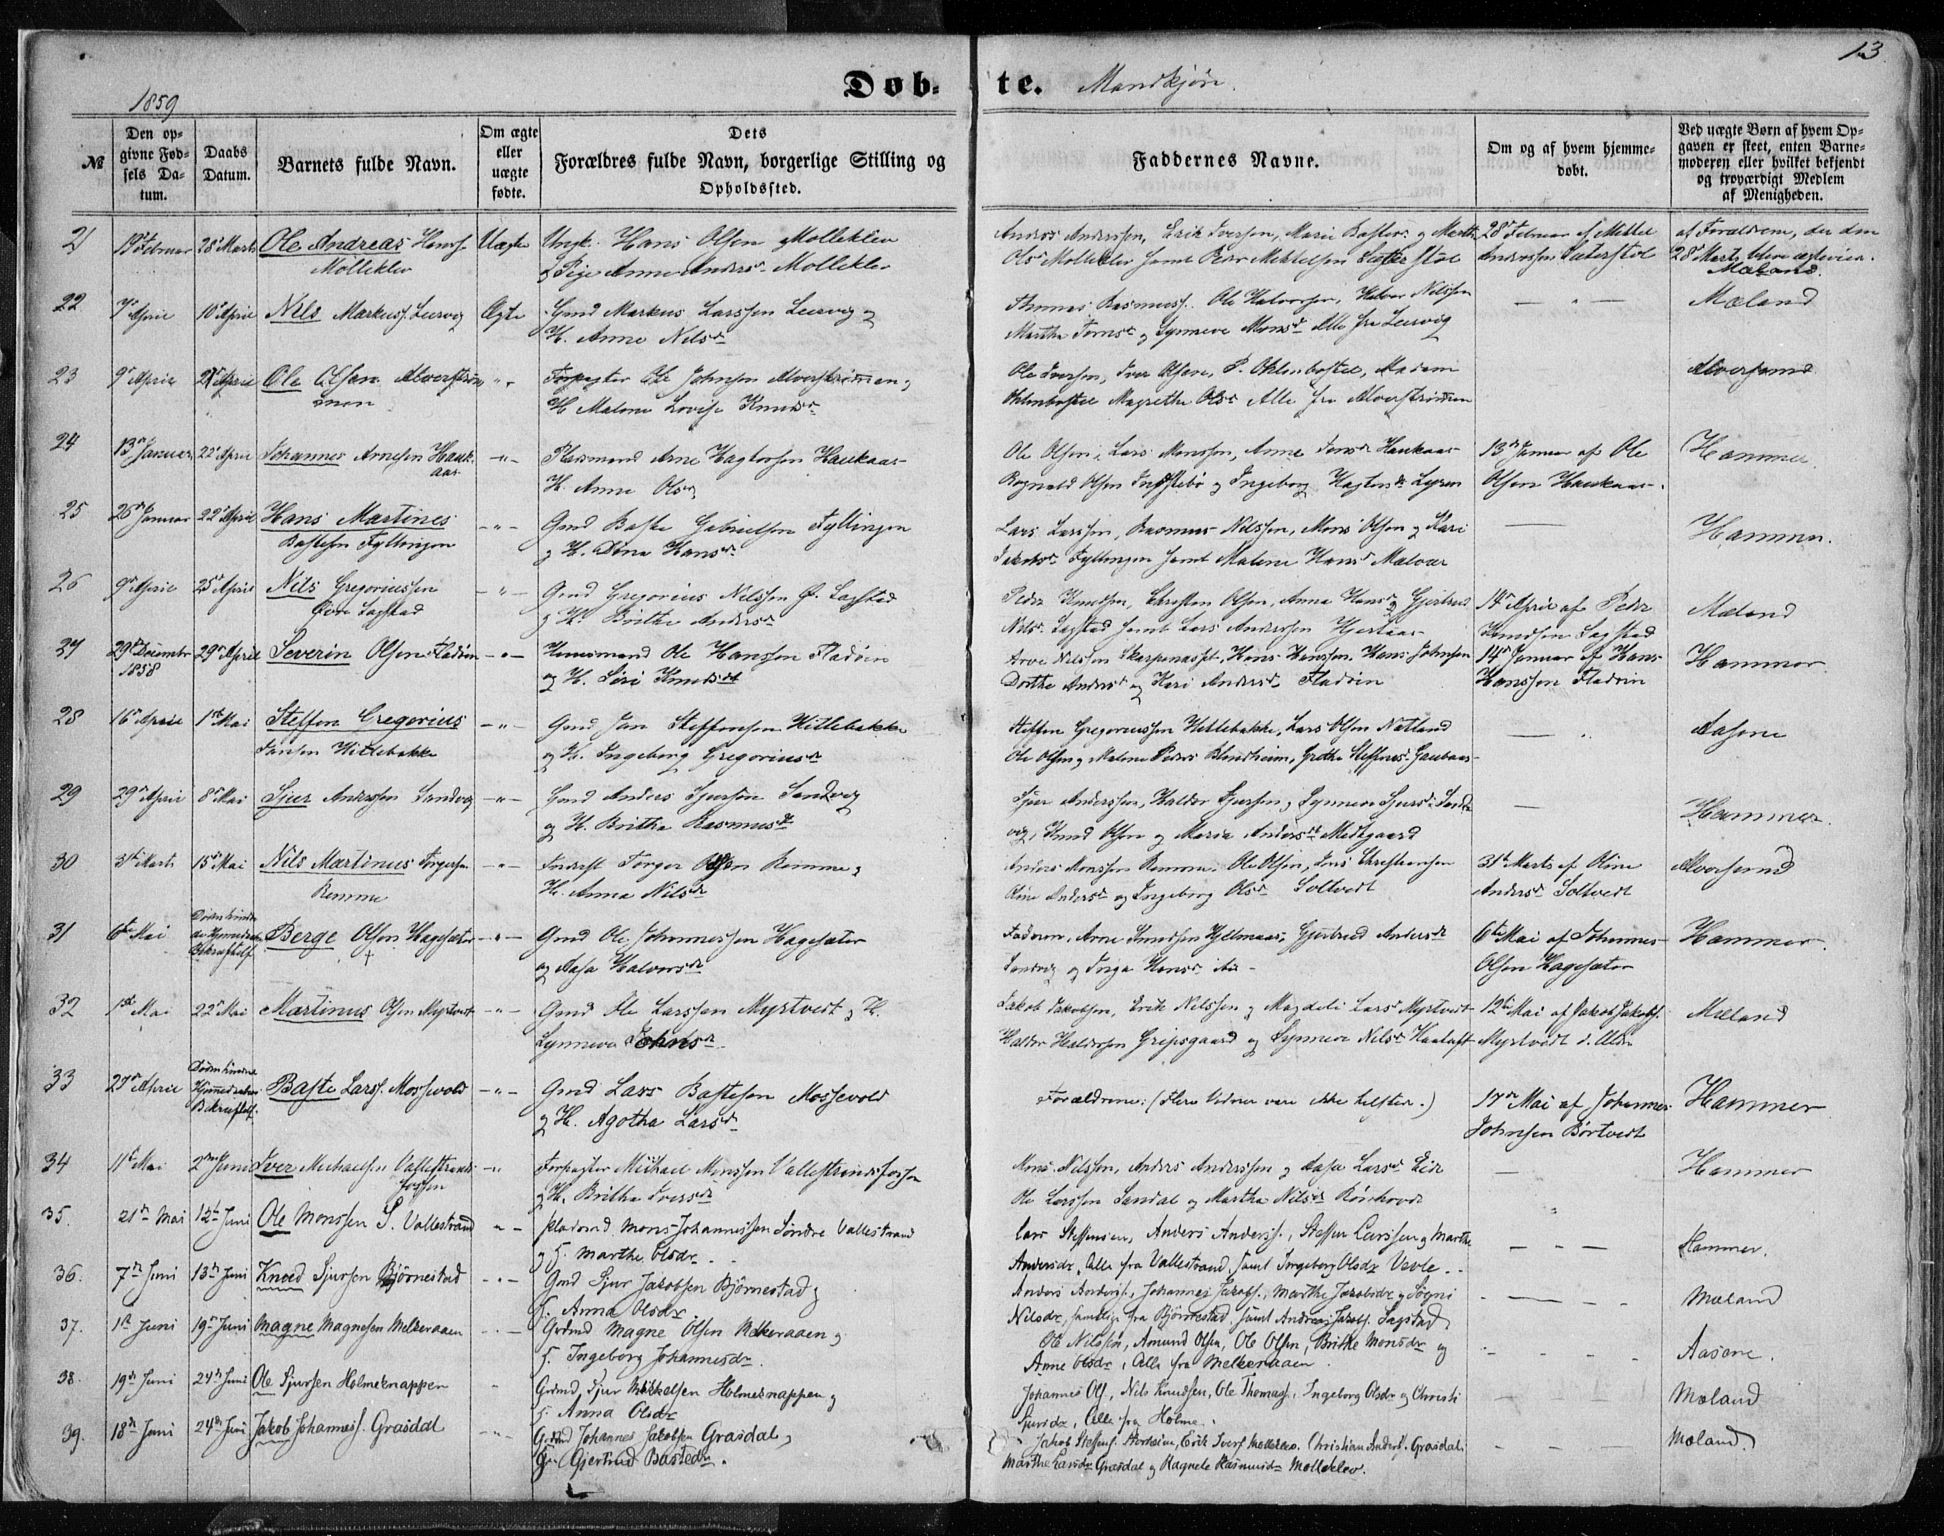 13
1859
Døb-
te. Mandkjøn.
№
Den op-
givne Fød-
sels Da-
tum.
Daabs
Datum.
Barnets fulde Navn.
Om ægte
eller
uægte
fødte.
Dets
Forældres fulde Navn, borgerlige Stilling og
Opholdssted.
Faddernes Navne.
Om og af hvem hjemme-
døbt.
Ved uægte Børn af hvem Op-
gaven er skeet, enten Barne-
moderen eller hvilket bekjendt
og troværdigt Medlem
af Menigheden.
21 19de Februar 28de Marts Ole Andreas Hanss. Uægte Ungk. Hans Olsen Molleklev
Molleklev & Pige Anne Andersdr Molleklev
28de Februar af Mikkel
Anderssen Sæterstøl
Mæland.
22 7de April 10de April Nils Markuss. Leervig Ægte Gmd Markus Larssen Leervig og
H. Anne Nilsdr
Thomas Rasmuss. Ole Halvorsen, Halvor Nilssen
og Synneve Monsdr Alle fra Leervig
Mæland
23 9de April April Ole Olsen Alverstrøm-
men
Forpagter Ole Johnsen Alverstrømmen og
H. Malene Lovise Knudsdr
Ole Iversen, Iver Olsen, Madam
Magrethe Olsdr Alle fra Alverstrømmen
Alversund
24 13de Januar 22de April Johannes Arnesen Hauk-
aas
Pladsmand Arne Hagtorsen Haukaas
H. Anne Olsdr
Ole Olsen, Lars Monssen, Anne Haukaas
Rognald Olsen og Ingeborg
13de Januar af Ole
Olsen Haukaas.
Hammer.
25 25de Januar 22de April Hans Martines
Bastesen Fyllingen
Gmd Baste Gabrielsen Fyllingen
og H. Dina Hansdr
Lars Larssen, Rasmus Nilssen, Mons Olsen og Kari
Jakobsdr Fyllingen samt Malene Hansdr
Hammer.
26 9de April 25de April Nils Gregoriussen
Øvre Sagstad
Gmd Gregorius Nilssen Ø. Sagstad
og H. Brithe Andersdr
Peder Knudsen, Christen Olsen, Anna Hansdr og Gjertrud
Nilsdr Sagstad samt Lars Anderssen Hjertaas
14de April af Peder
Knudsen Sagstad
Mæland
27 29de Decembr
1858 29de April Severin Olsen Fladøen
Huusmand Ole Hanssen Fladøen
og H. Siri Knudsdr
Arve Nilssen Skarpenæsset, Hans Hanssen, Hans Johnsen
Dorthe Andersdr og Kari Andersdr Fladøen
14de Januar af Hans
Hanssen Fladøen
Hammer
28 16de April 1ste Mai Steffen Gregorius
Jansen Hitlebakke
Gmd Jan Steffensen Hitlebakke
og H. Ingeborg Gregoriusdr
Steffen Gregoriussen Hitlebakke, Lars Olsen Natland
Ole Olsen og Malene Pedersdr Blindheim, Grethe Steffensdr Gaukaas
Aasene
29 29de April 8de Mai Sjur Anderssen Sandvig
Gmd Anders Sjursen Sandvig
og H. Brithe Rasmusdr
Sjur Anderssen, Haldor Sjursen, Synneve Sjursdr Sand-
vig, Knud Olsen og Marie Andersdr Midtgaard
Hammer.
30 31te Marts 15de Mai Nils Martinus Torgersen
Remme
Torger Olsen Remme og
H. Anna Nilsdr
Anders Monssen Remme, Ole Olsen, Lars Christensen
Oline Andersdr og Ingeborg Olsdr Soltvedt
31te Marts af Oline
Andersdr Soltvedt
Alversund
31 6te Mai Berge Olsen Hagesæter
†
Gmd Ole Johannessen Hagesæter
og Aasa Halvorsdr
Faderen, Arne Knudsen Hjelmaas, Gjertrud Andersdr
Sandvig og Inga Hansdr
6te Mai af Johannes
Olsen Hagesæter
Hammer.
32 1ste Mai 22de Mai Martinus Olsen Myrtvedt
Gmd Ole Larssen Myrtvedt og H.
Synneva Johnsdr
Jakob Jakobsen, Erik Nilssen og Magdeli Larsdr Myrtvedt
Haldor Haldorsen Gripsgaard og Synneve Nilsdr
12te Mai af Jakob Jakobs.
Myrtvedt
Mæland
33 27de April Baste Larss. Mossevold
Gmd Lars Bastesen Mossevold
og H. Agatha Larsdr
Forældrene: (Flere Vidner vare ikke tilstede.)
17de Mai af Johannes
Johnsen Børtvedt
Hammer
34 11te Mai 2den Juni Iver Michaelsen Vallestrands-
fossen
Forpagter Michael Monssen Vallestrandsfossen
og H. Brithe Iversdr
Mons Nilssen, Anders Anderssen og Aasa Larsdr Eide
Ole Larssen Sandal og Martha Nilsdr
Hammer
35. 21de Mai 12te Juni Ole Monssen S. Vallestrand
Pladsmd Mons Johannessen Søndre Vallestrand
og H. Marthe Olsdr.
Lars Steffensen, Anders Anderss., Steffen Larssen og Marthe
Andersdr, Alle fra Vallestrand, samt Ingeborg Olsdr Vevle.
Hammer.
36. 7de Juni 13de Juni Knud Sjursen Bjørnestad
Gmd Sjur Jakobsen Bjørnestad og
H. Anna Olsdr
Anders Anderss., Johannes Jakobs., Marthe Jakobsdr og Søgni
Nilsdr, samtlige fra Bjørnestad, samt Andreas Jakobs. Sagstad
Mæland
37. 1ste Juni 19de Juni Magne Magnesen Melkeraaen
Grdmd Magne Olsen Melkeraaen og
H. Ingeborg Johannesdr.
Ole Nilssen, Amund Olsen, Ole Olsen, Brithe Monsdr og
Anne Olsdr, Alle fra Melkeraaen.
Aasane.
38. 19de Juni 24de Juni Ole Sjursen Holmeknappen
Grdmd, Sjur Mikkelsen Holmeknappen og
H. Anna Olsdr
Johannes Ols., Nils Knudsen, Ole Thomass., Ingeborg Olsdr og Christi
Sjursdr, Alle fra Holme.
Mæland
39. 18de Juni 24de Juni Jakob Johanness. Grasdal
Grdmd Johannes Jakobsen Grasdal, og
H. Gjertrud Bastedr.
Jakob Steffens. Erik Iverss. Molleklev. Christian Anders. Grasdal.
Marthe Larsdr Grasdal og Ragnele Rasmusdr Molleklev.
Mæland.